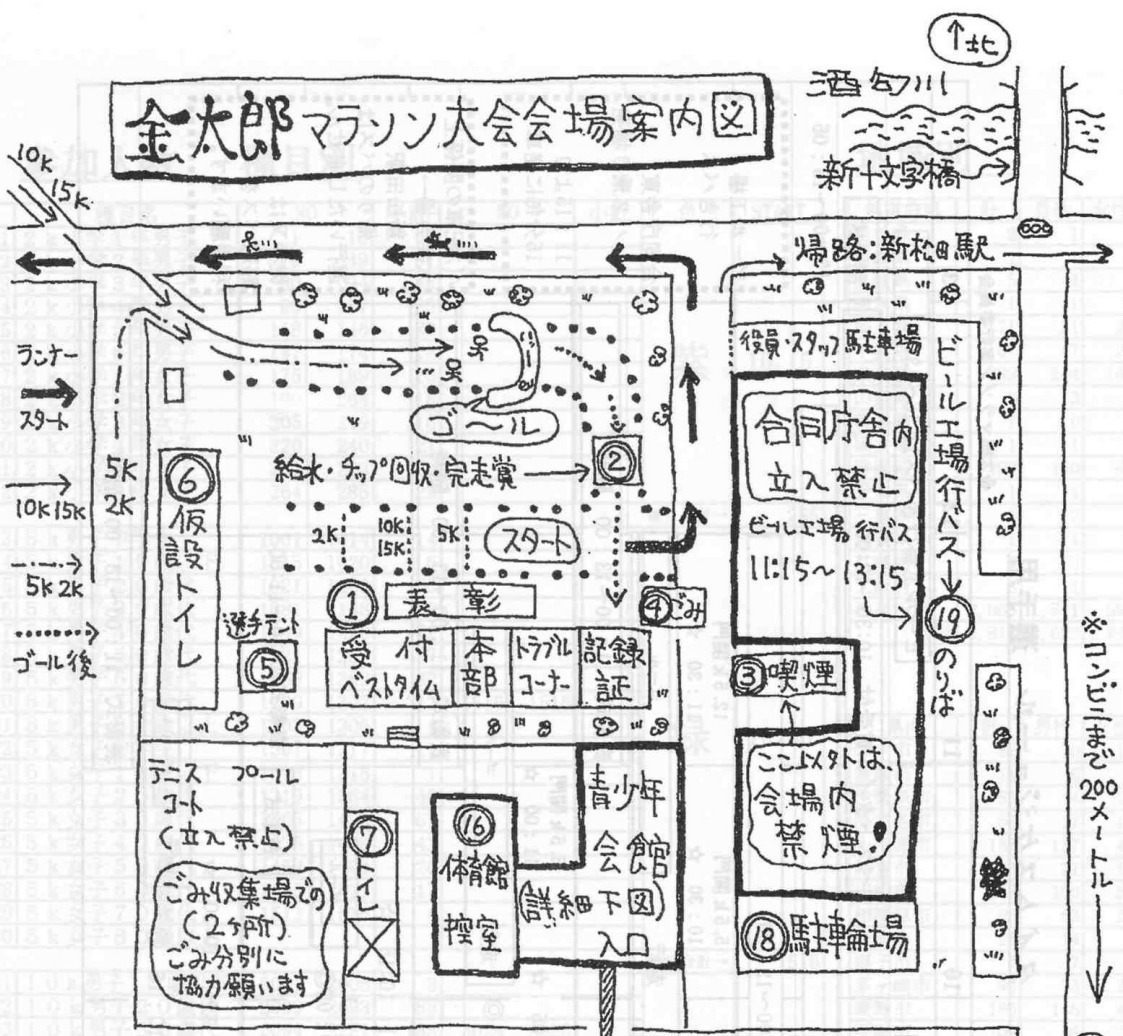 ↑北
金太郎マラソン大会会場案内図
酒匂川
新十文字橋
10K
15K
帰路:新松田駅
ランナー
スタート
10K 15K
5K 2K
ゴール後
5K
2K
ゴール
給水・チップ回収・完走賞
②
2K
10K
15K
5K
スタート
⑥仮設トイレ
選手テント
⑤
① 表彰
受付
ベストタイム
本部
トラブル
コーナー
記録証
④ごみ
役員・スタッフ駐車場
合同庁舎内
立入禁止
ビール工場行バス
11:15〜13:15
ビール工場行バス
⑲のりば
③喫煙
ここ以外は、
会場内
禁煙!
⑱駐輪場
※コンビニまで200メートル
テニス プール
コート
(立入禁止)
ごみ収集場での
(2ヶ所)
ごみ分別に
協力願います
⑦トイレ
⑯
体育館
控室
青少年
会館
(詳細下図)
入口